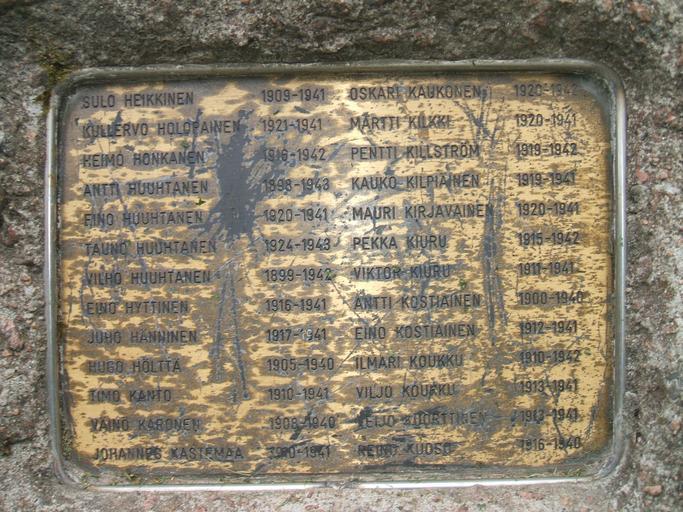 SULO HEIKKINEN 1909-1941
KULLERVO HOLOPAINEN 1921-1941
HEIMO HONKANEN 1916-1942
ANTTI HUUHTANEN 1898-1943
EINO HUUHTANEN 1920-1941
TAUNO HUUHTANEN 1924-1943
VILHO HUUHTANEN 1899-1942
EINO HYTTINEN 1916-1941
JUHO HÄNNINEN 1917-1941
HUGO HÖLTTÄ 1905-1940
TIMO KANTO 1910-1941
VÄINÖ KARONEN 1908-1940
JOHANNES KASTEMAA
OSKARI KAUKONEN 1920-1942
MARTTI KILKKI 1920-1941
PENTTI KILLSTRÖM 1919-1942
KAUKO KILPIÄINEN 1919-1941
MAURI KIRJAVAINEN 1920-1941
PEKKA KIURU 1915-1942
VIKTOR KIURU 1911-1941
ANTTI KOSTIAINEN 1900-1940
EINO KOSTIAINEN 1912-1941
ILMARI KOUKKU 1910-1942
VILJO KOUKKU 1913-1941
1913-1941
REINO KUOSO 1916-1940